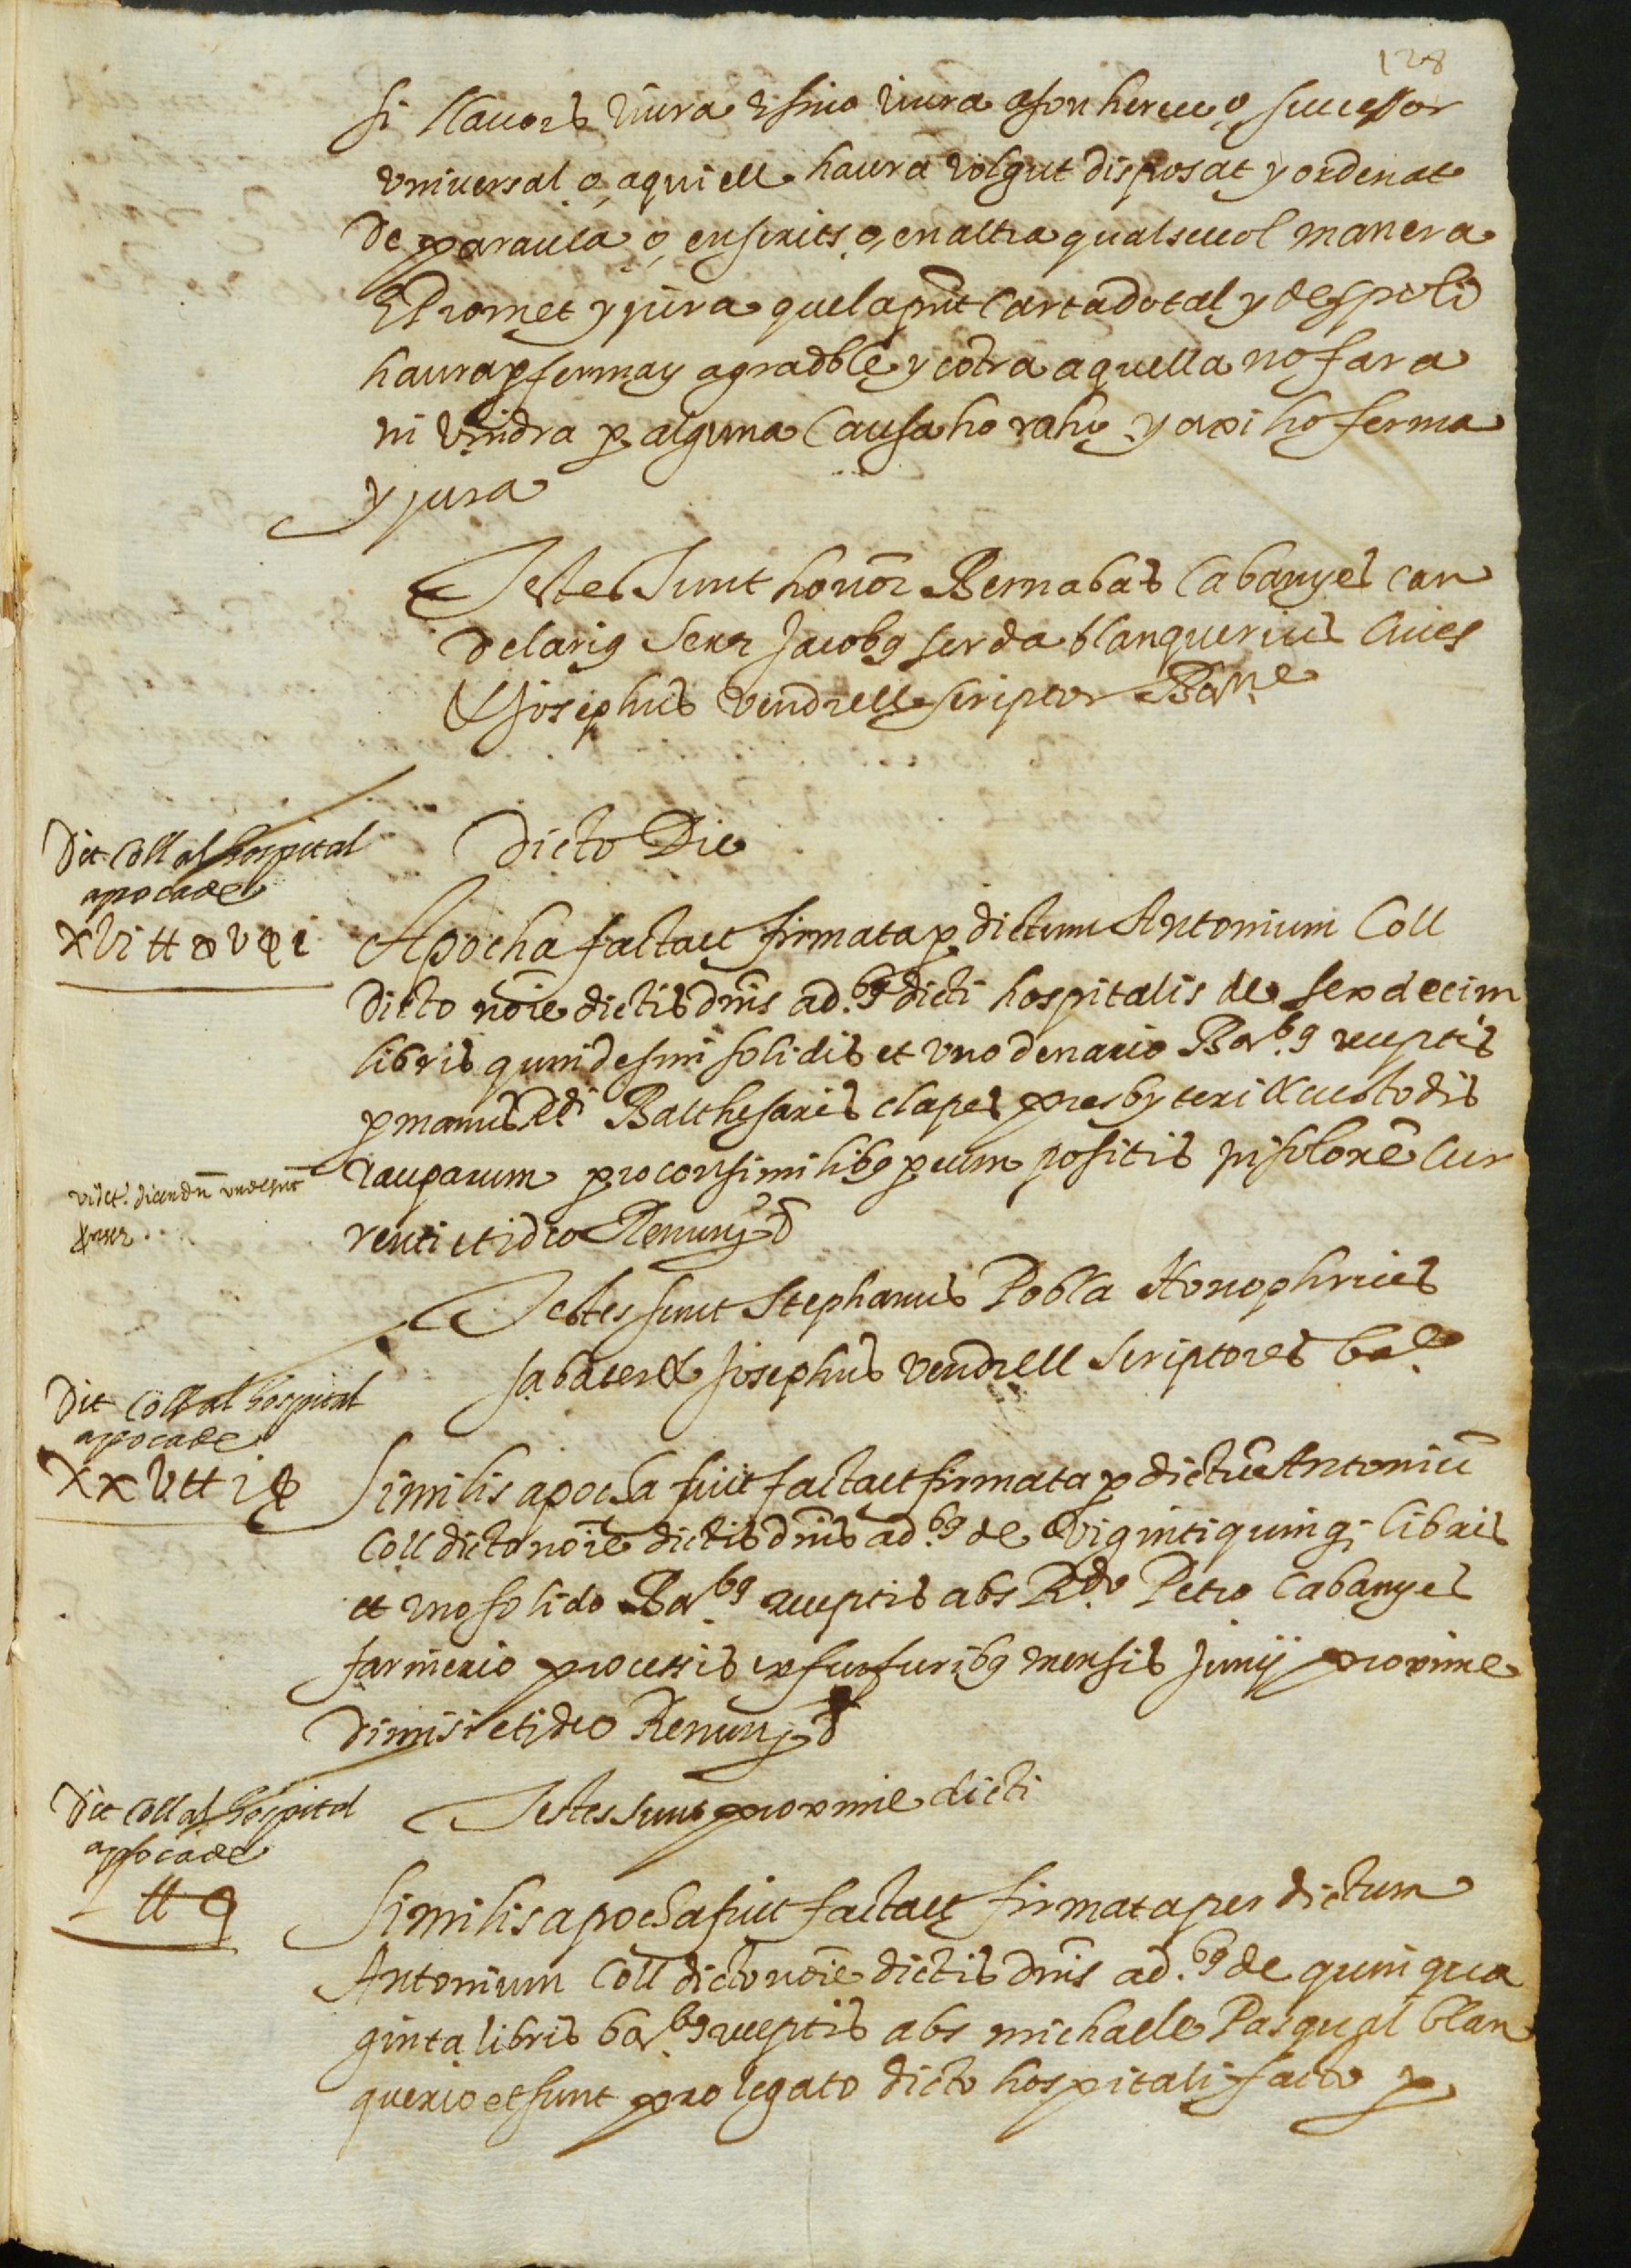 128
si llauors viura E sino viura a son hereu o, successor
vniuersal o, a qui ell haura volgut disposat y ordenat
de paraula o, en scrits o, en altra qualseuol manera
E Promet y jura quel apnt Carta dotal y despoli
haura p ferma y agradble y cotra aquella no fara
ni vindra p alguna Causa ho rahó y axi ho ferma
y jura
Testes Sunt honor Bernabas Cabanyes can
delarig Senr Jacobg serda blanquerius Ciues
& Josephus vendrell scriptor Barne
Dicto Die
Dit Coll al hospital
apoca de
xvi tt xv i
Apocha facta et firmata p dictum Antonium Coll
dicto noie dictis dnis ad.bg dicti hospitalis de sexdecim
libris quindesim solidis et vno denario Bar.bg receptis
p manus Rdi Balthesaris clapes presbyteri & custodis
rauparum pro consimilibg p eum positis in solone Cur
renti et ideo Renunj d
videt. dicendu vndesunt
Testes sunt Stephanus Pobla Honophrius
sabater & Josephus vendrell Scriptores bae
Dit Coll al hospital
apoca de
xxv tt i
Similis apocha fuit facta et firmata p dictu Antoniu
Coll dicto noie dictis dnis ad.bg de viginti quinq; libris
et vno solido Bar.bg receptis abs Rdo Petro Cabanyes
farinerio processis ex furfuribg mensis Junij proxime
dimisi et ideo Renunj d
Testes sunt proxime dicti
Dit Coll al hospital
apoca de
L tt
Similis apocha fuit facta et firmata per dictum
Antonium Coll dicto noie dictis dnis ad.bg de quinqua
ginta libris bar.bg receptis abs michaele Pasqual blan
querio et sunt pro legato dicto hospitali facto p